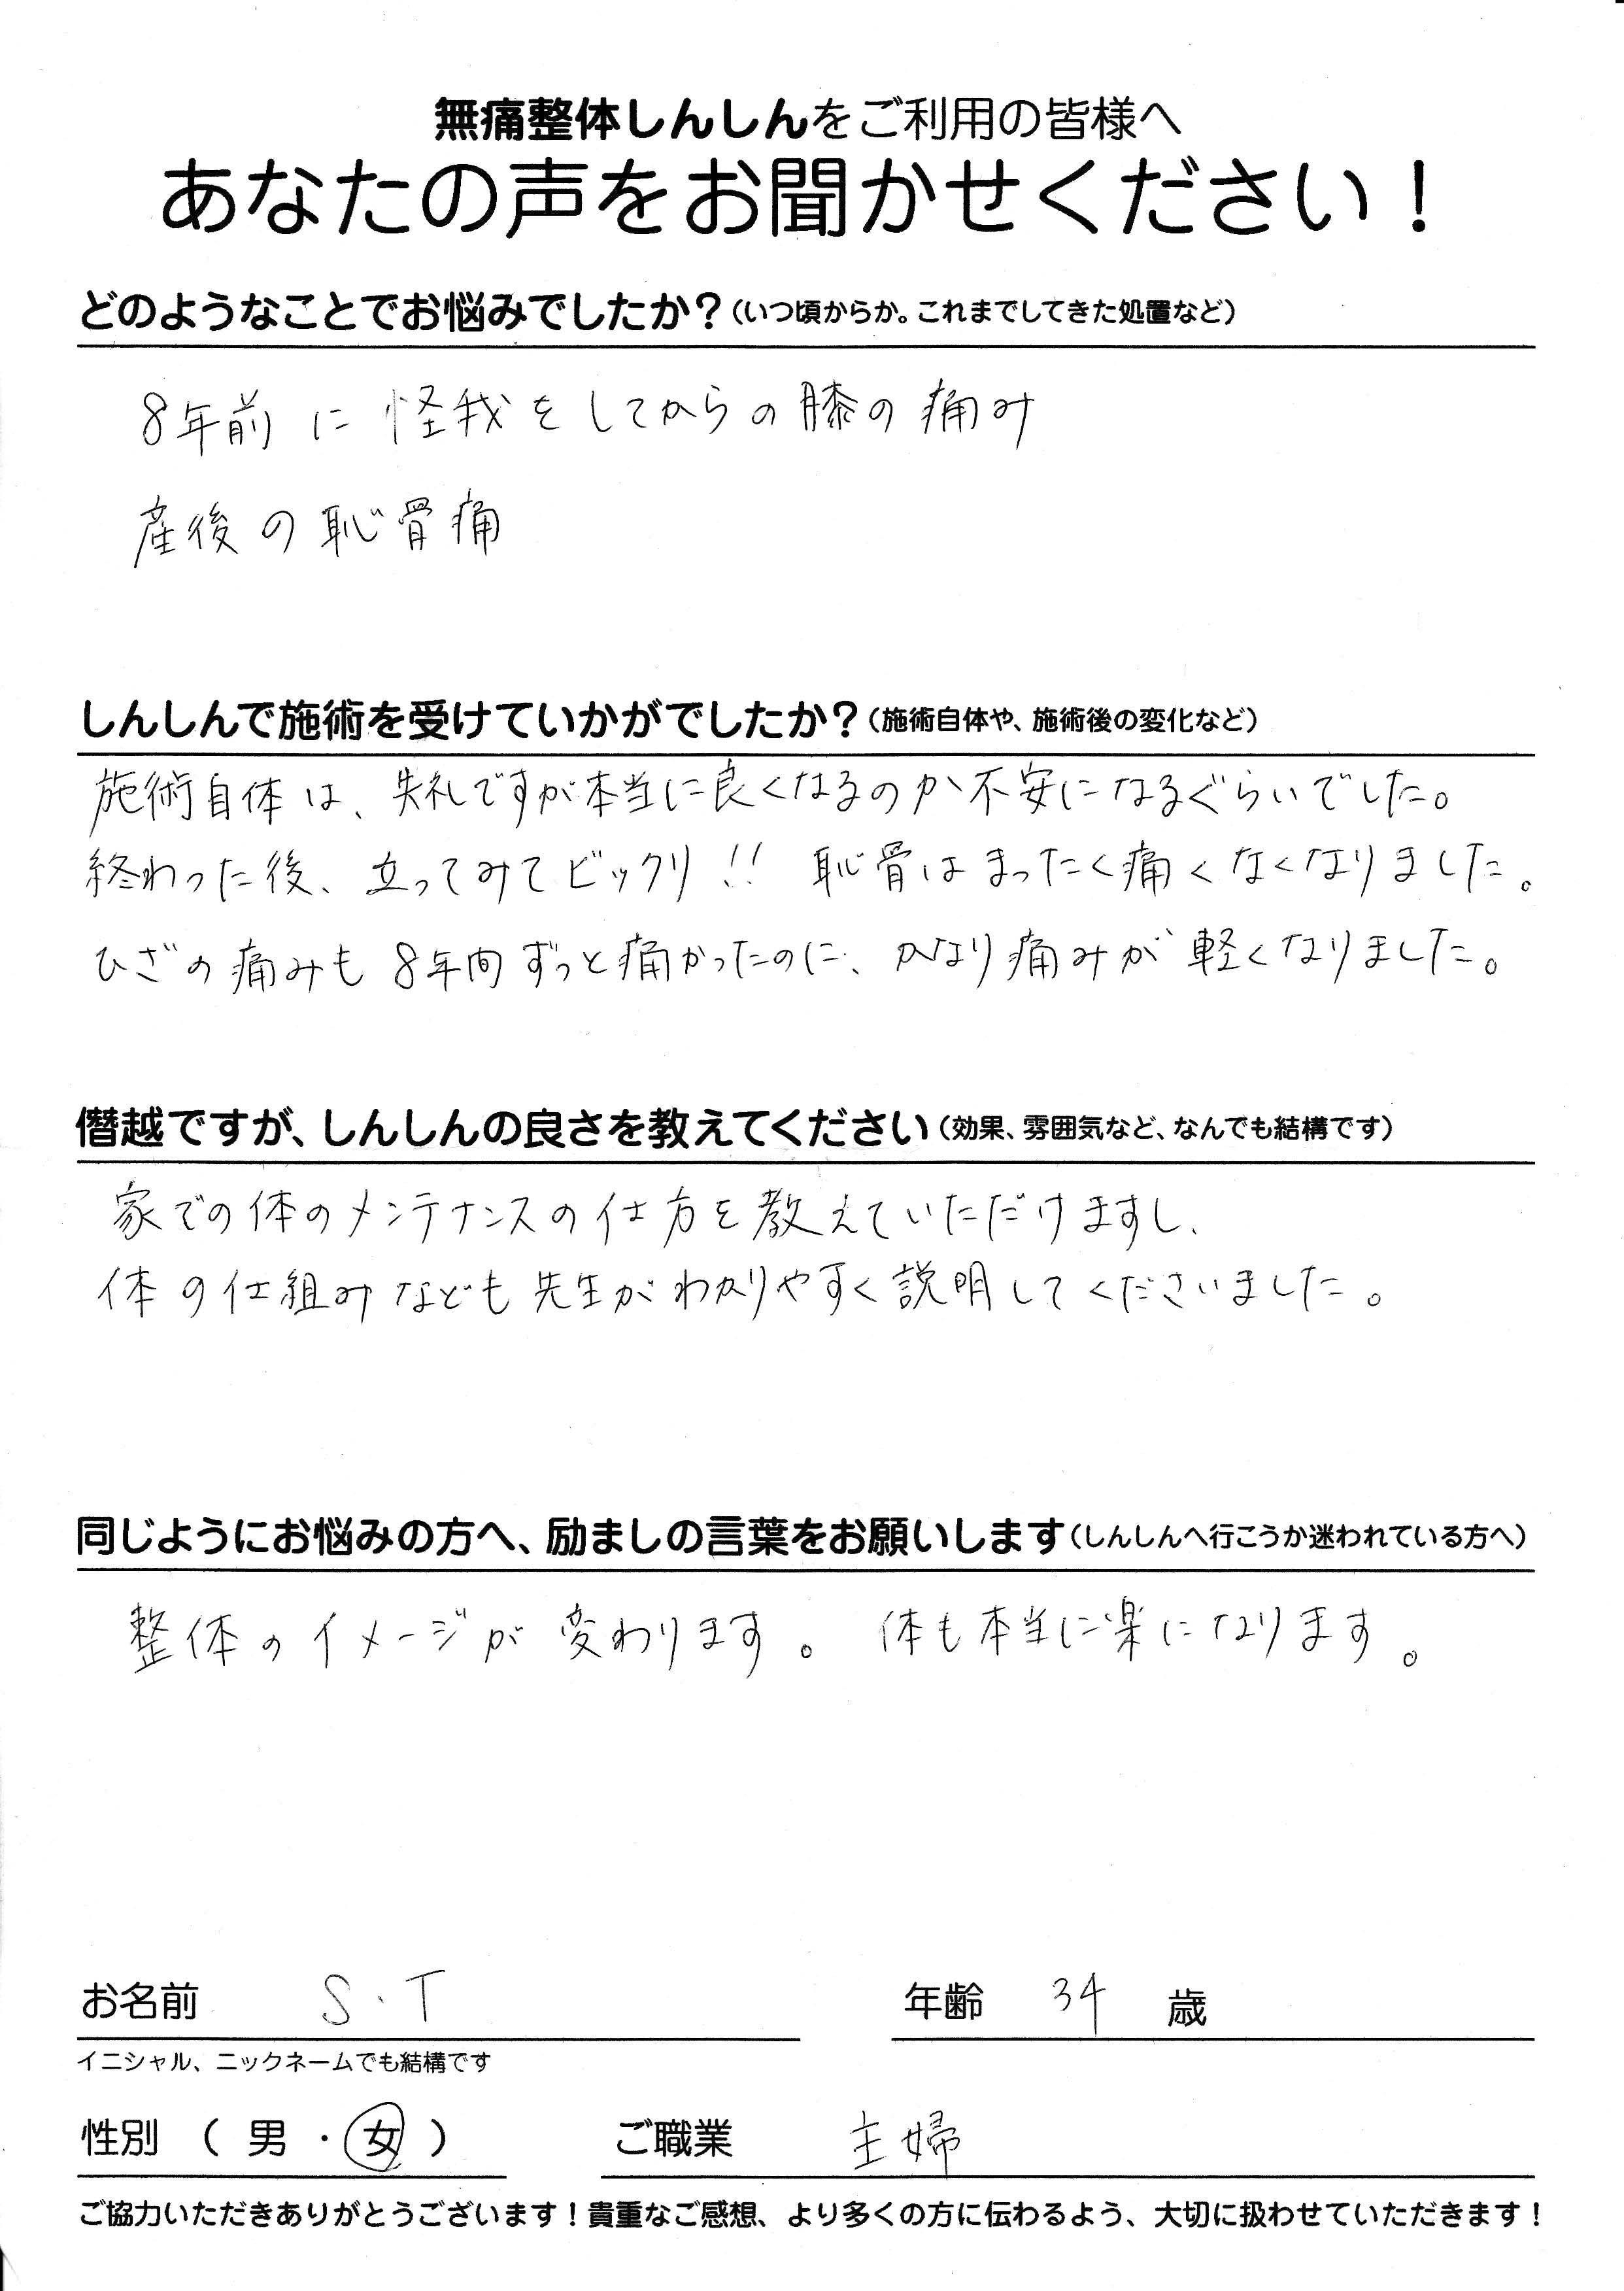 無痛整体しんしんをご利用の皆様へ
あなたの声をお聞かせください！
どのようなことでお悩みでしたか？（いつ頃からか。これまでしてきた処置など）
8年前に怪我をしてからの膝の痛み
産後の恥骨痛
しんしんで施術を受けていかがでしたか？（施術自体や、施術後の変化など）
施術自体は、失礼ですが本当に良くなるのか不安になるぐらいでした。
終わった後、立ってみてビックリ!! 恥骨はまったく痛くなくなりました。
ひざの痛みも8年間ずっと痛かったのに、かなり痛みが軽くなりました。
僭越ですが、しんしんの良さを教えてください（効果、雰囲気など、なんでも結構です）
家での体のメンテナンスの仕方を教えていただけますし、
体の仕組みなども先生がわかりやすく説明してくださいました。
同じようにお悩みの方へ、励ましの言葉をお願いします（しんしんへ行こうか迷われている方へ）
整体のイメージが変わります。 体も本当に楽になります。
お名前 S.T 年齢 34 歳
イニシャル、ニックネームでも結構です
性別 （ 男 ・ 女 ） ご職業 主婦
ご協力いただきありがとうございます！貴重なご感想、より多くの方に伝わるよう、大切に扱わせていただきます！